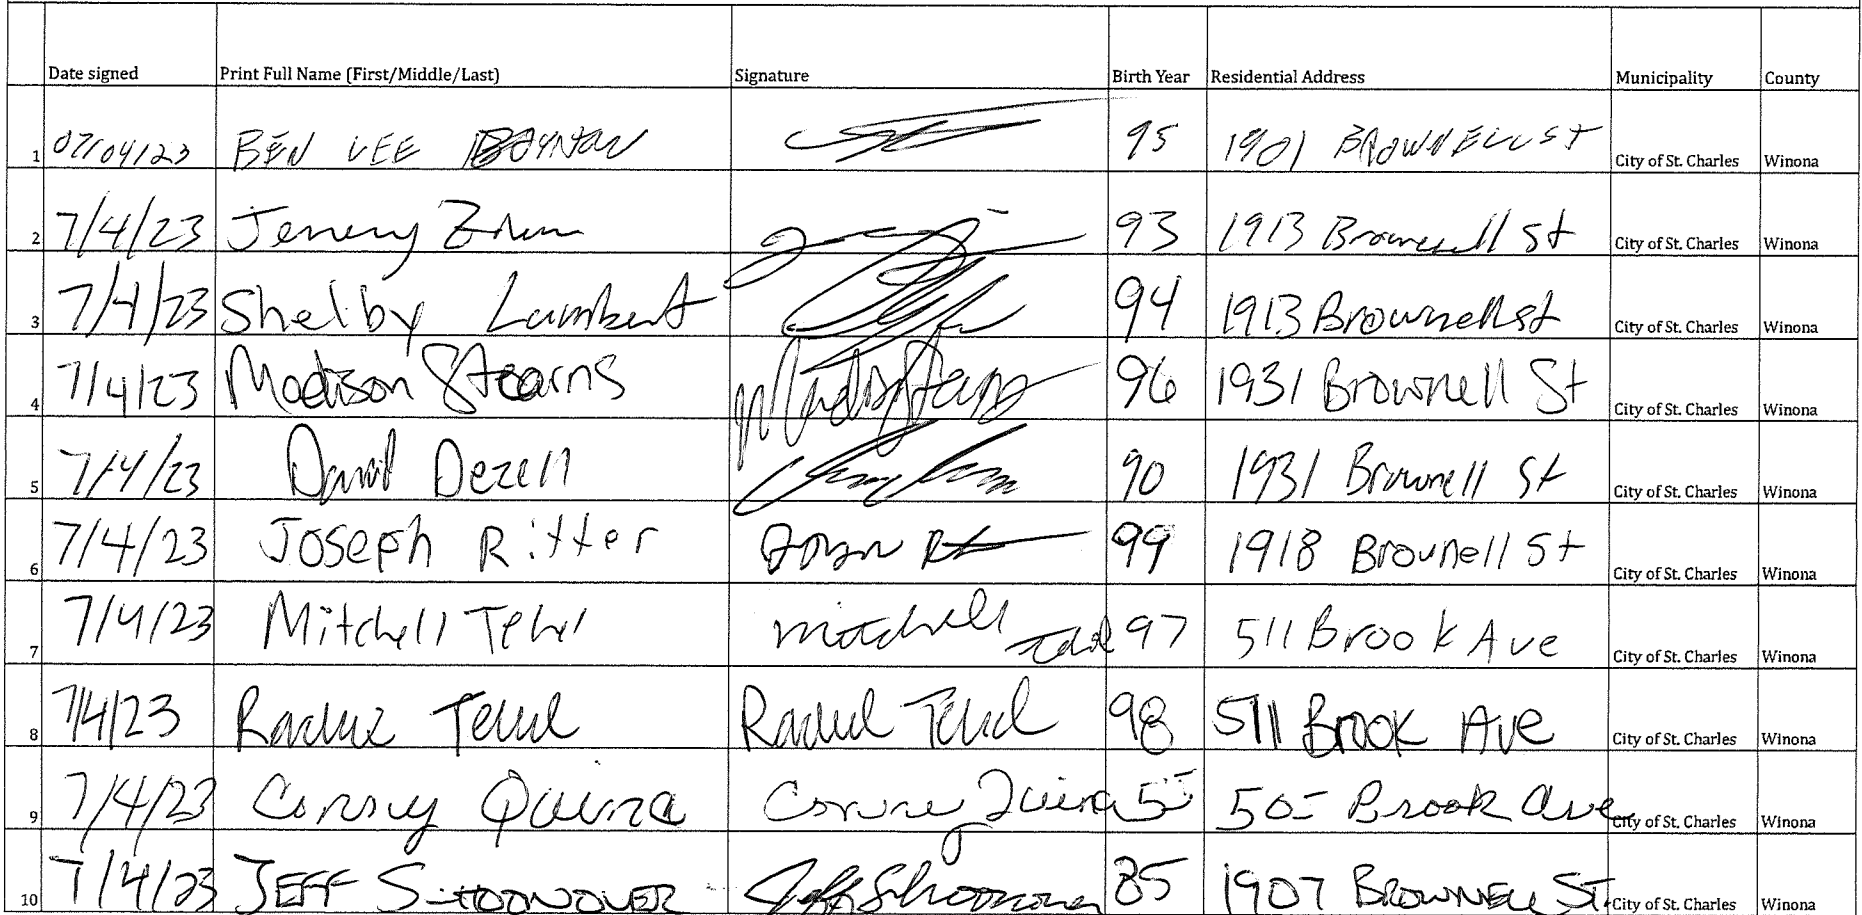 Date signed Print Full Name (First/Middle/Last) Signature Birth Year Residential Address Municipality County
1 07/04/23 BEN LEE BOYNTON 95 1901 BROWNELL ST City of St. Charles Winona
2 7/4/23 Jeremy 93 1913 Brownell St City of St. Charles Winona
3 7/4/23 Shelby Lambert 94 1913 Brownell st City of St. Charles Winona
4 7/4/23 Madison Stearns Madison Stearns 96 1931 Brownell St City of St. Charles Winona
5 7/4/23 David Dezell 90 1931 Brownell St City of St. Charles Winona
6 7/4/23 Joseph Ritter 99 1918 Brownell St City of St. Charles Winona
7 7/4/23 Mitchell mitchell 97 511 Brook Ave City of St. Charles Winona
8 7/4/23 98 511 Brook Ave City of St. Charles Winona
9 7/4/23 Quinn 505 Brook Ave City of St. Charles Winona
10 7/4/23 JEFF SCHOONOVER Jeff Schoonover 85 1907 BROWNELL ST City of St. Charles Winona